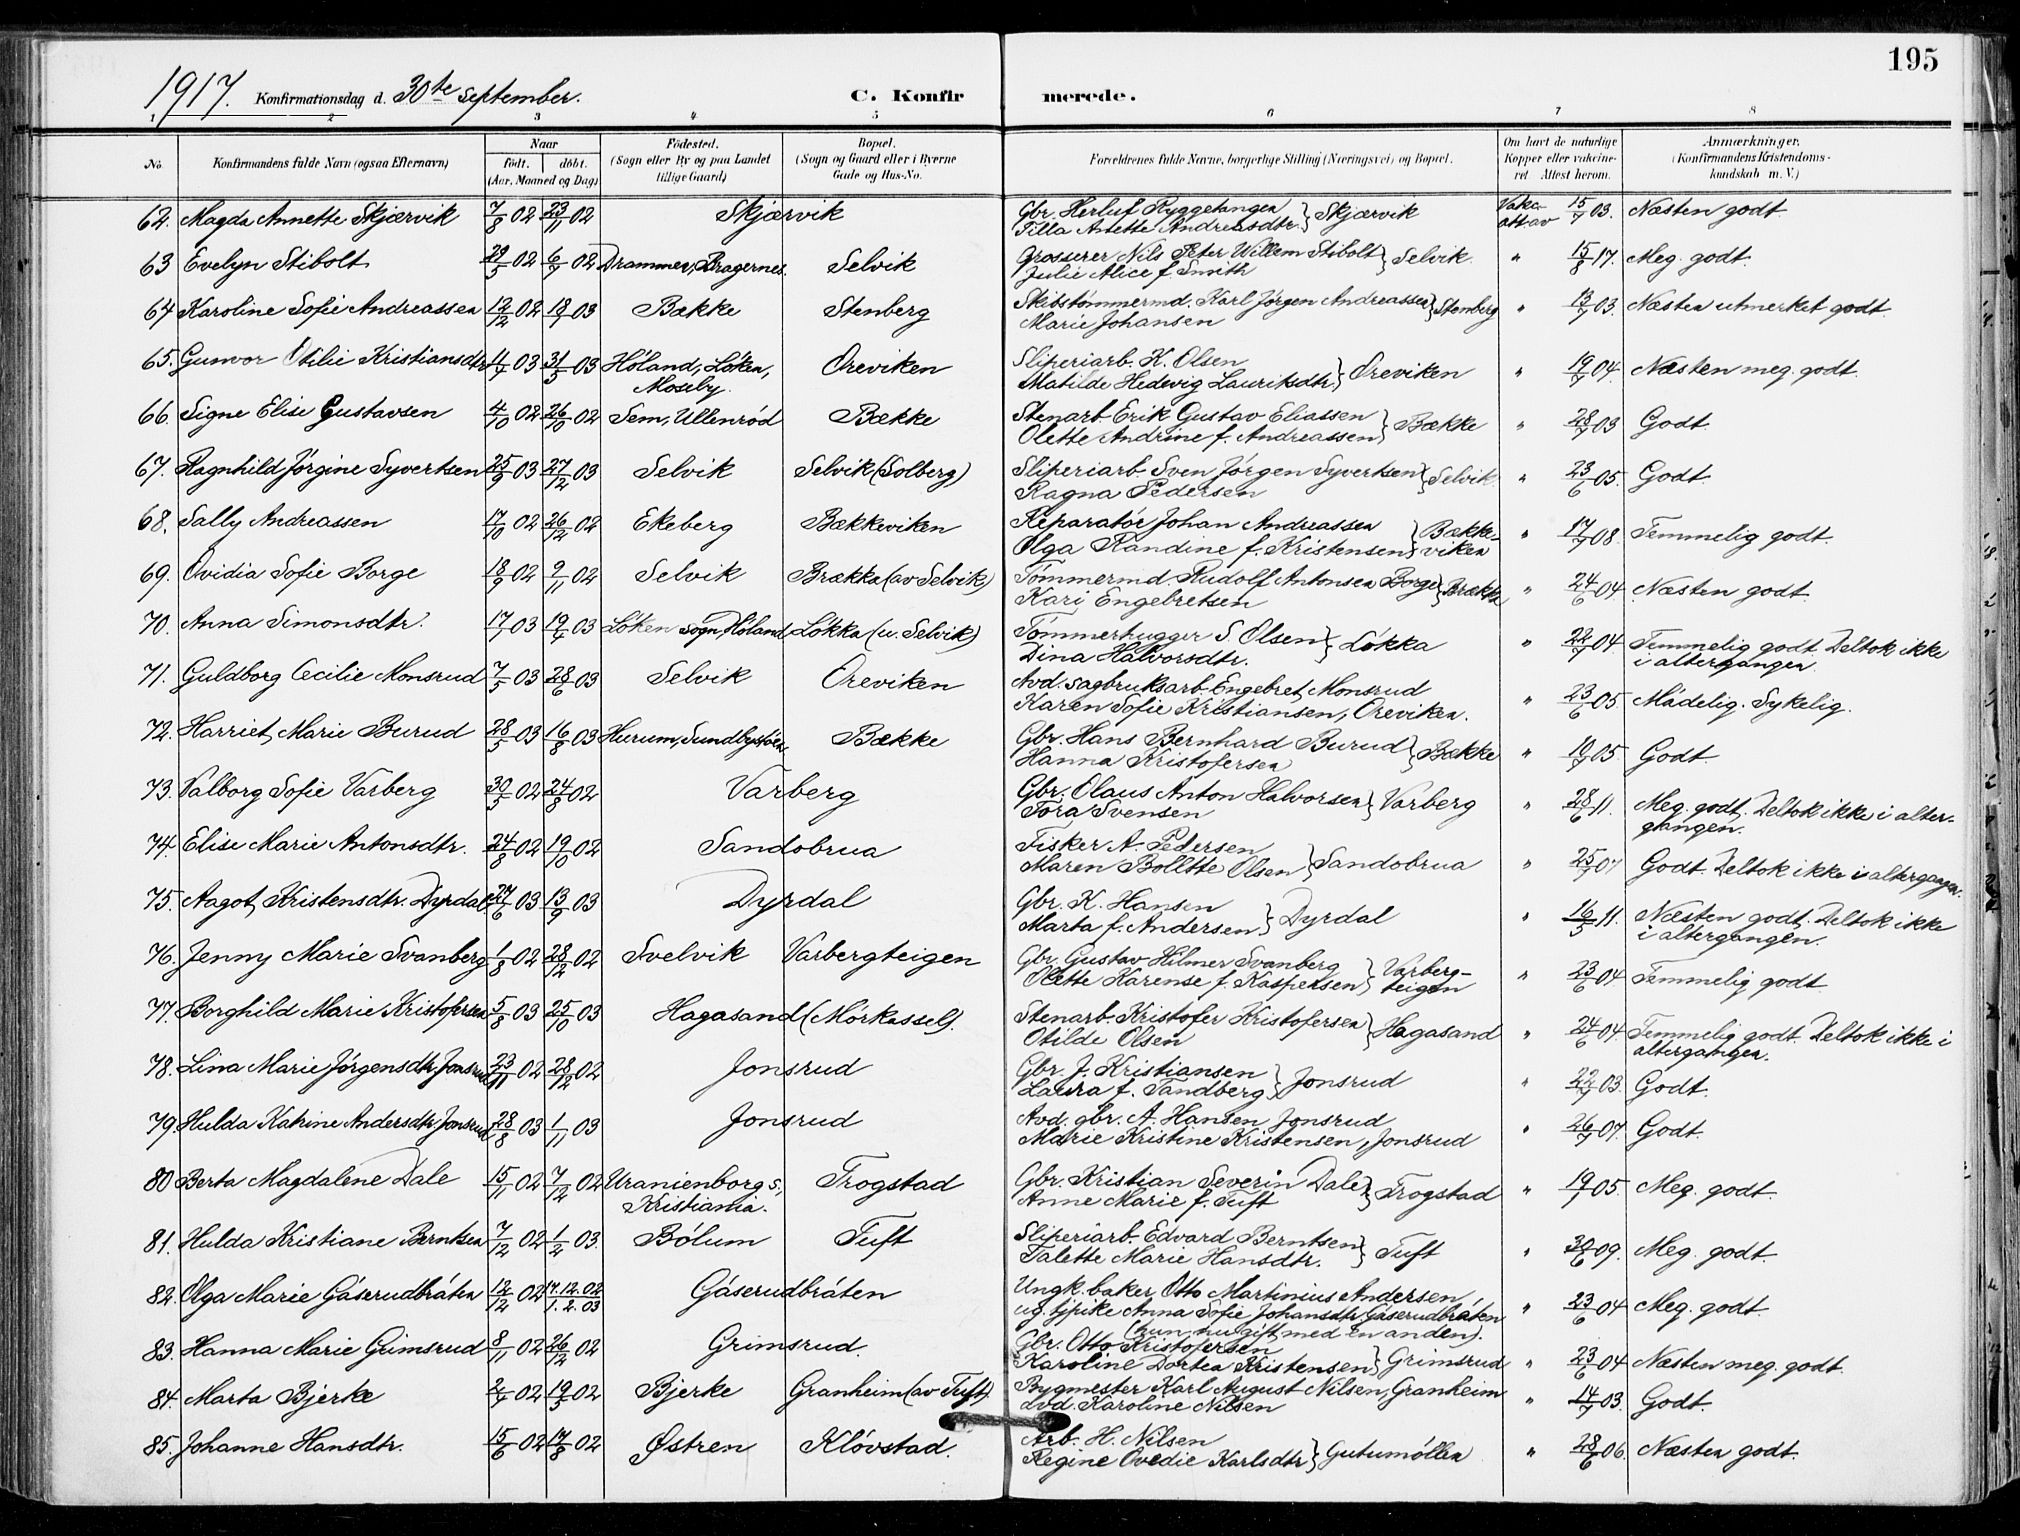 195
1917. Konfirmationsdag d. 30te September. C. Konfirmerede.
1 2 3 4 5 6 7 8
No. Konfirmandens fulde Navn (ogsaa Efternavn) Naar født. døbt. (Aar, Maaned og Dag) Fødested. (Sogn eller By og paa Landet tillige Gaard) Bopæl. (Sogn og Gaard eller i Byerne Gade og Hus-No. Forældrenes fulde Navne, borgerlige Stilling (Næringsvei) og Bopæl. Om havt de naturlige Kopper eller vaccineret. Attest herom. Anmærkninger. (Konfirmandens Kristendomskundskab m. V.)
62. Magda Annette Skjærvik 7/8 02 23/11 02 Skjærvik Gbr. Herluf Ryggetangen } Skjærvik Vaks. att av 15/7 03. Næsten godt
Tilla Anette Andreasdtr.
63 Evelyn Stibolt 29/5 02 6/7 02 Drammen, Bragernes Selvik Grosserer Nils Peter Willem Stibolt } Selvik " 15/8 17. Meg. godt.
Julie Alice f. Smith
64 Karoline Sofie Andreassen 12/12 02 18/1 03 Bække Stenberg Skibstømmermd. Karl Jørgen Andreassen } Stenberg " 13/7 03. Næsten utmerket godt.
Marie Johansen
65. Gunvor Otilie Kristiansdtr 4/4 03 31/5 03 Høland, Løken, Moseby. Oreviken Sliperiarb. K. Olsen } Oreviken " 19/7 04. Næsten meg. godt.
Matilde Hedevig Lauritsdtr.
66. Signe Elise Gustavsen 4/10 02 26/10 02 Sem, Ullenrød Bække Stenarb. Erik Gustav Eliassen } Bække " 28/7 03 Godt.
Olette Andrine f. Andreassen
67. Ragnhild Jørgine Syvertsen 25/9 03 27/12 03 Selvik Selvik (Solberg) Sliperiarb. Sven Jørgen Syvertsen } Selvik " 23/6 05. Godt.
Ragna Pedersen
68. Sally Andreassen 17/10 02 26/12 02 Ekeberg Bækkeviken Reparatør Johan Andreassen } Bække- " 17/7 08. Temmelig godt.
Olga Randine f. Kristensen viken
69. Ovidia Sofie Borge 18/9 02 9/11 02 Selvik Brækka (av Selvik) Tømmermd. Rudolf Antonsen Borge } Brækka " 24/6 04. Næsten godt.
Kari Engebretsen
70. Anna Simonsdtr. 17/1 03 19/4 03 Løken sogn, Høland Løkka (u. Selvik) Tømmerhugger S. Olsen } Løkka " 22/7 04. Temmelig godt. Deltok ikke
Dina Halvorsdtr. i altergangen.
71. Guldborg Cecilie Monsrud 7/5 03 28/6 03 Selvik Oreviken Avd. sagbruksarb. Engebret Monsrud " 23/6 05. Mådelig. Sykelig.
Karen Sofie Kristiansen, Oreviken.
72. Harriet Marie Burud 28/5 03 16/8 03 Hurum, Sundbysøen Bække Gbr. Hans Bernhard Burud } Bække " 10/7 05. Godt.
Hanna Kristofersen
73. Valborg Sofie Varberg 30/5 02 24/8 02 Varberg Gbr. Olaus Anton Halvorsen } Varberg " 28/6 11. Meg. godt. Deltok ikke i alter-
Tora Svensen gangen.
74. Elise Marie Antonsdtr. 24/8 02 19/10 02 Sandobrua Fisker A. Pedersen } Sandobrua " 25/7 07 Godt. Deltok ikke i altergangen.
Maren Bollette Olsen
75. Aagot Kristensdtr. Dyrdal 27/6 03 13/9 03 Dyrdal Gbr. K. Hansen } Dyrdal " 16/5 11. Næsten godt. Deltok ikke
Marta f. Andersen i altergangen.
76. Jenny Marie Svanberg 1/8 02 28/12 02 Svelvik Varbergteigen Gbr. Gustav Hilmer Svanberg } Varberg- " 23/6 04 Temmelig godt
Olette Karense f. Kaspersen teigen
77. Borghild Marie Kristofersen 5/8 03 25/10 03 Hagasand (Mørkassel). Stenarb. Kristofer Kristofersen } Hagasand " 24/6 04. Temmelig godt. Deltok ikke i
Otilde Olsen altergangen.
78. Lina Marie Jørgensdtr. Jonsrud 23/11 02 28/12 02 Jonsrud Gbr. J. Kristiansen } Jonsrud " 22/7 03. Godt.
Laura f. Tandberg
79. Hulda Katrine Andersdtr Jonsrud 28/8 03 1/11 03 Jonsrud Avd. gbr. A. Hansen Jonsrud " 26/7 07. Godt.
Marie Kristine Kristensen, Jonsrud
80 Berta Magdalene Dale 15/11 02 7/12 02 Uranienborg s., Kristiania. Trogstad Gbr. Kristian Severin Dale } Trogstad " 19/7 05. Meg. godt.
Anne Marie f. Tuft
81. Hulda Kristiane Berntsen 7/12 02 1/2 03. Bølum Tuft Sliperiarb. Edvard Berntsen } Tuft " 30/6 09. Meg. godt.
Talette Marie Hansdtr.
82. Olga Marie Gåserudbråten 12/12 02 17.12.02 1.2.03 Gåserudbråten Ungk. baker Otto Martinius Andersen, " 23/6 04 Meg. godt.
ug. tjpike Anna Sofie Johansdtr. Gåserudbråten
(hun nu gift med en anden).
83. Hanna Marie Grimsrud 8/11 02 26/12 02 Grimsrud. Gbr. Otto Kristofersen } Grimsrud " 23/6 04 Næsten meg. godt.
Karoline Dortea Kristensen
84. Marta Bjerke 2/4 02 19/5 02 Bjerke Granheim (av Tuft). Bygmester Karl August Nilsen, Granheim " 14/7 03. Godt.
avd. Karoline Nilsen
85. Johanne Hansdtr. 15/6 02 17/8 02 Østren Kløvstad. Arb. H. Nilsen } Gutumøllen " 28/6 06. Næsten godt.
Regine Ovedie Karlsdtr